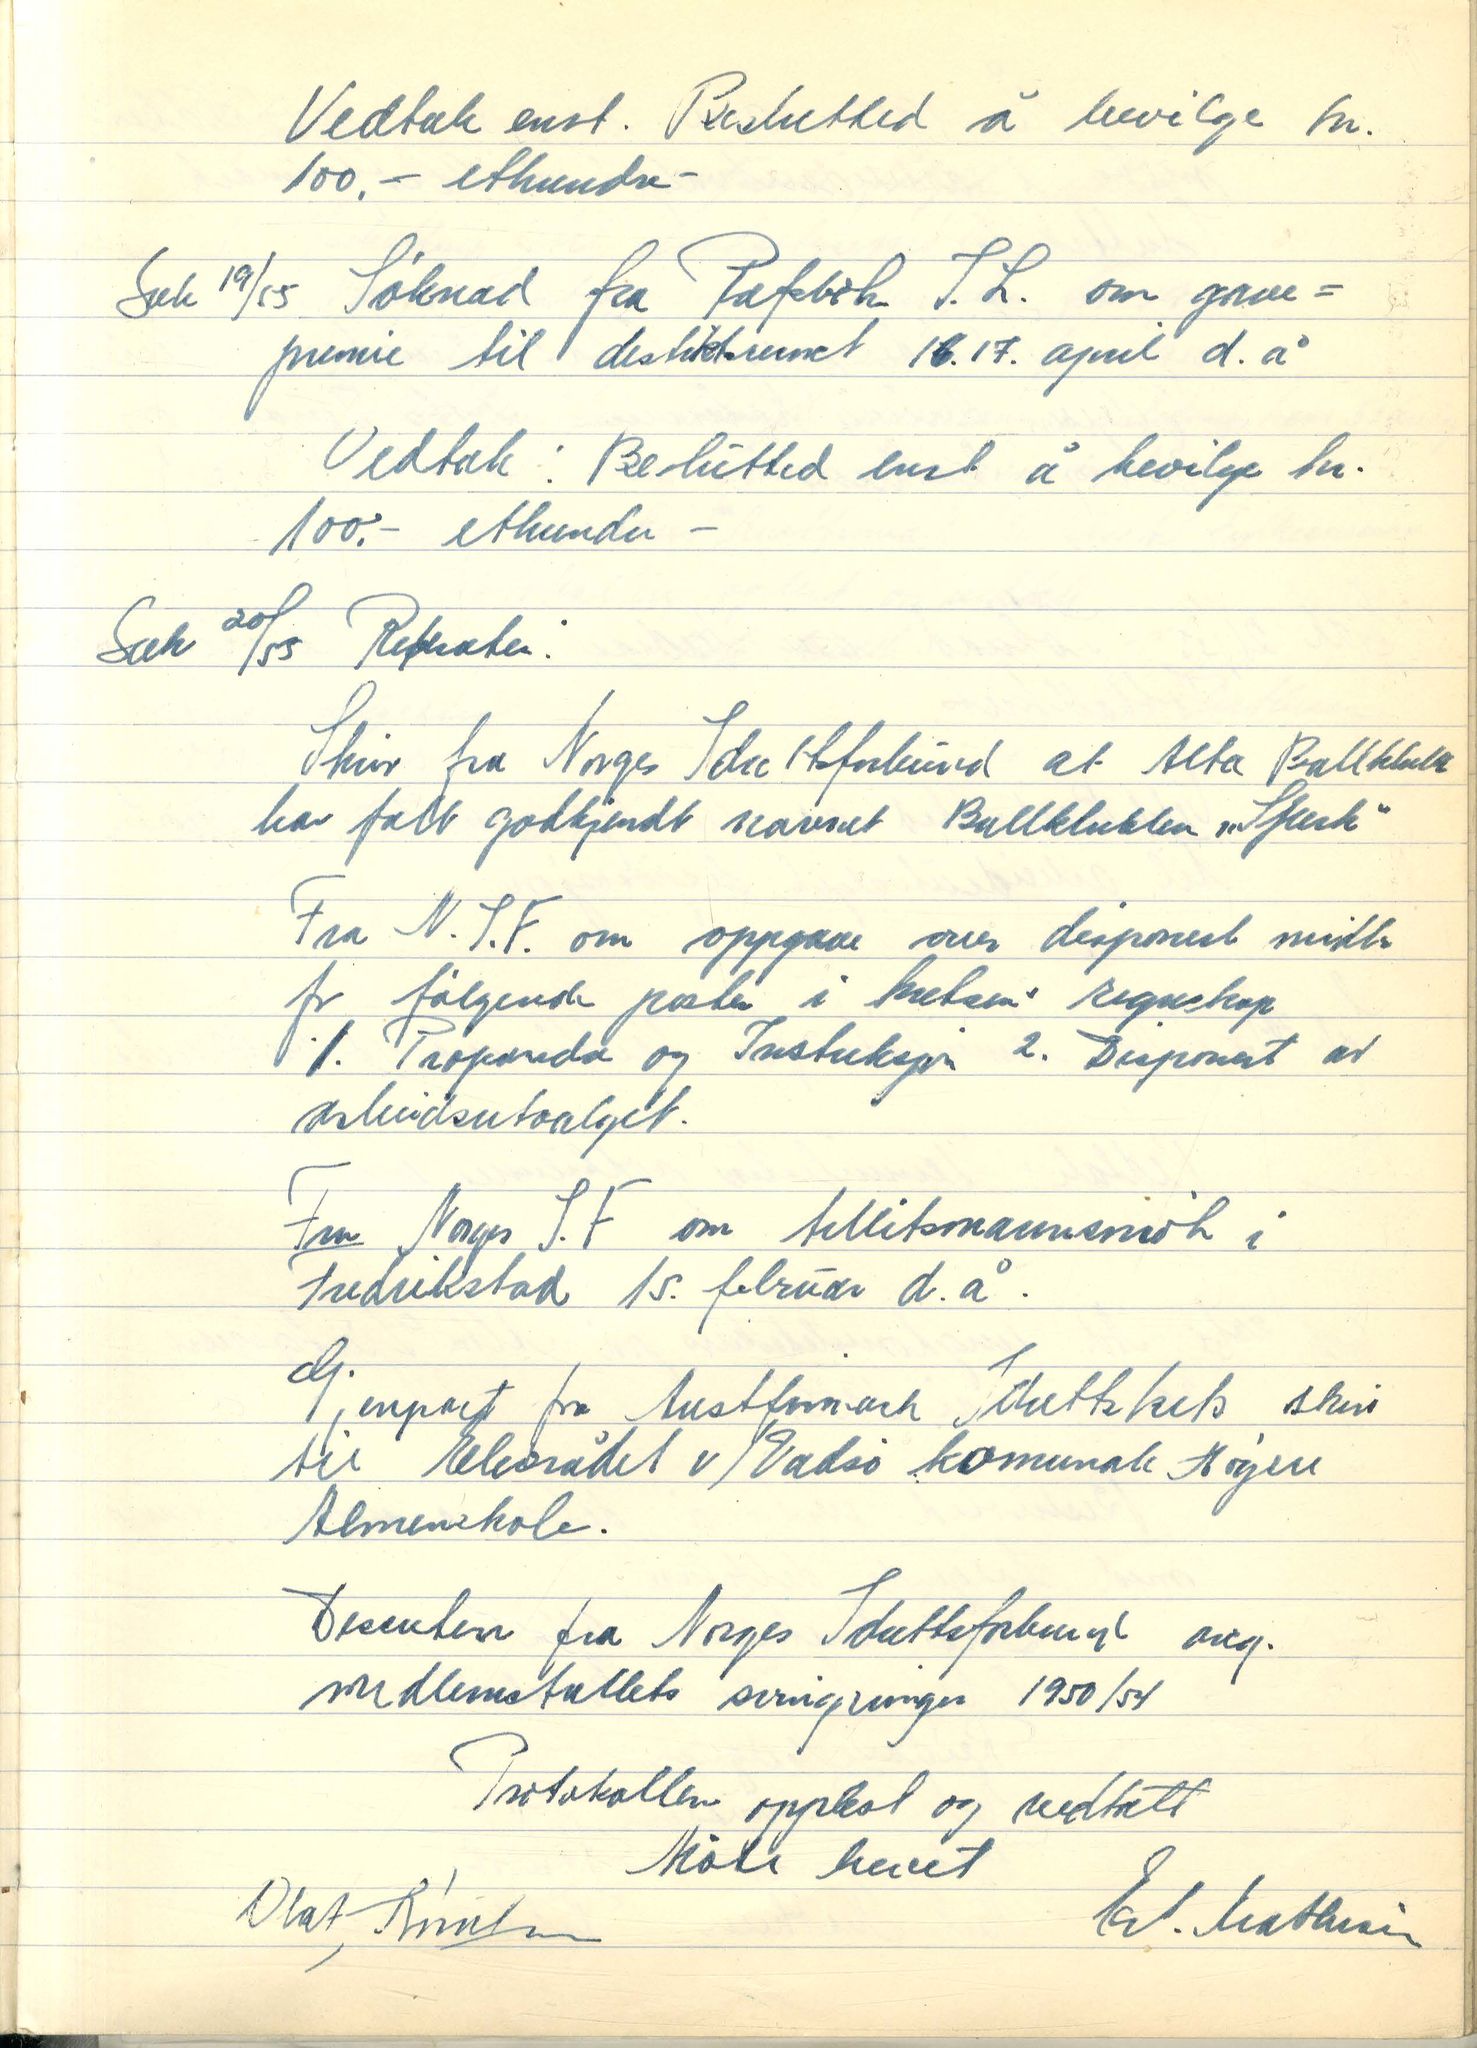 Vedtak enst. Beslutted å bevilge kr.
100.- ethundre-
Sak 19/55 Söknad fra Rafsbotn I.L. om gave=
premie til distriktsrennet 16.17. april d. å
Vedtak: Beslutted enst å bevilge kr.
100.- ethundre -
Sak 20/55 Referater:
Skriv fra Norges Idrettsforbund at Alta Ballklubb
har fått godkjendt navnet Ballklubben "
Fra N.I.F. om oppgave over disponert midler
for fölgende poster i kretsens regnskap
1. Propaganda og Instruksjon 2. Disponert av
arbeidsutvalget.
Fra Norges I.F om tillitsmannsmöte i
Fredrikstad 15. februar d. å.
Gjenpart fra Austfinmark Idrettskrets skriv
til Elevrådet v/Vadsö komunale Högere
Almenskole.
fra Norges Idrettsforbund ang.
medlemstallets 1950/54
Protokollen opplest og vedtatt
Möte hevet
Olaf
Mathisen